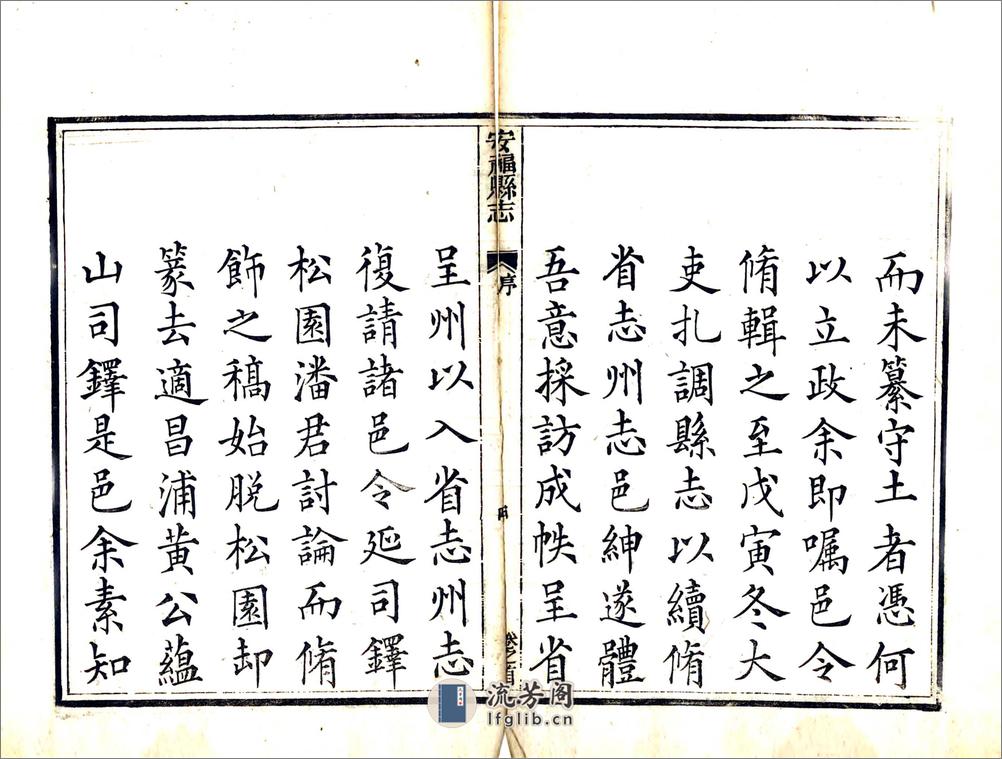 而未纂守土者憑何
以立政余即嘱邑令
脩輯之至戊寅冬大
吏扎調縣志以續脩
省志州志邑紳遂體
吾意採訪成帙呈省
安福縣志
序
卷之首
呈州以入省志州志
復請諸邑令延司鐸
松園潘君討論而脩
飾之稿始脱松園卸
篆去適昌浦黄公蘊
山司鐸是邑余素知
流芳阁
lfglib.cn